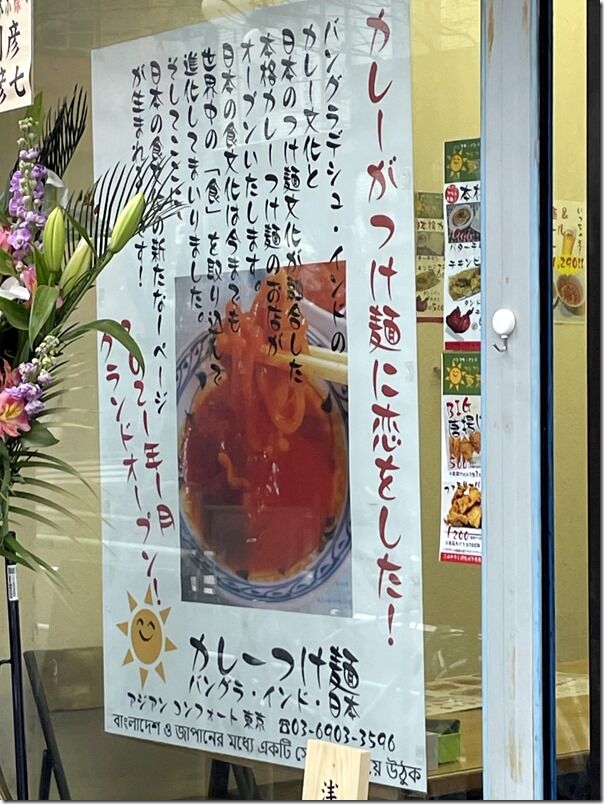 カレーがつけ麺に恋をした！
バングラデシュ・インドの
カレー文化と
日本のつけ麺文化が融合した
本格カレーつけ麺のお店が
オープンいたします。
日本の食文化は今までも
世界中の「食」を取り込んで
進化してまいりました。
そしてここに、
日本の食文化の新たな一ページ
が生まれます！
2021年1月
グランドオープン！
カレーつけ麺
バングラ・インド・日本
アジアンコンフォート東京 ☎03-6903-3596
বাংলাদেশ ও জাপানের মধ্যে একটি উঠুক
彦七
本格
バターチ
チキンビ
タンド
東京
BIG
唐揚げ
500
¥200
1,290